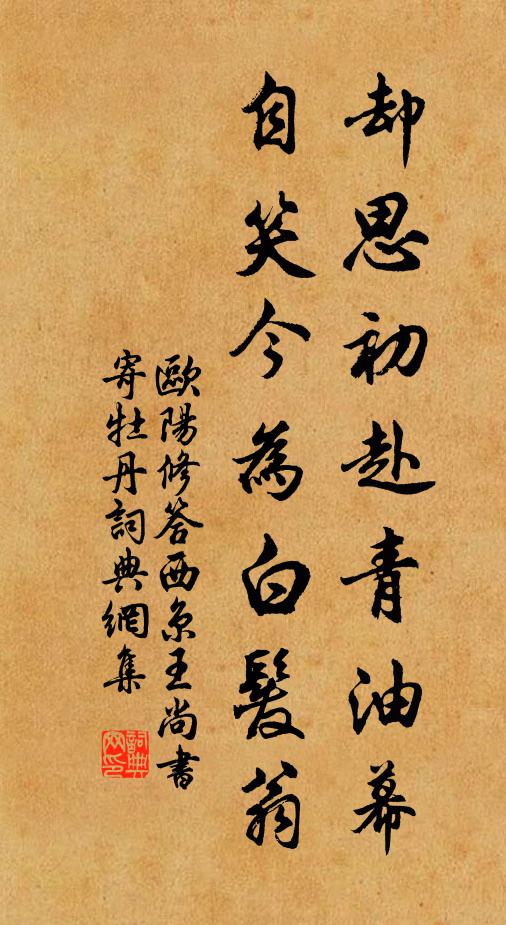 却思初赴青油幕
自笑今為白髮翁
歐陽修答西京王尚書
寄牡丹詞典網集
詞典網印